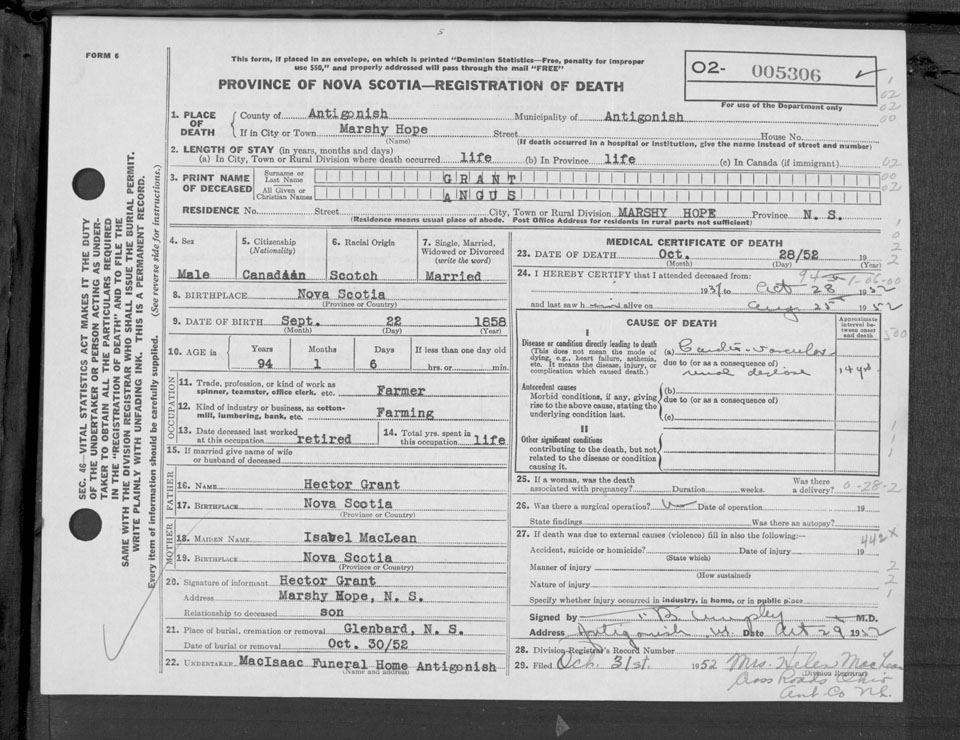 FORM 6
5
This form, if placed in an envelope, on which is printed "Dominion Statistics—Free, penalty for improper
use $50," and properly addressed will pass through the mail "FREE"
PROVINCE OF NOVA SCOTIA—REGISTRATION OF DEATH
O2- 005306
For use of the Department only
SEC. 46—VITAL STATISTICS ACT MAKES IT THE DUTY
OF THE UNDERTAKER OR PERSON ACTING AS UNDER-
TAKER TO OBTAIN ALL THE PARTICULARS REQUIRED
IN THE "REGISTRATION OF DEATH" AND TO FILE THE
SAME WITH THE DIVISION REGISTRAR WHO SHALL ISSUE THE BURIAL PERMIT.
WRITE PLAINLY WITH UNFADING INK. THIS IS A PERMANENT RECORD.
Every item of information should be carefully supplied. (See reverse side for instructions.)
1. PLACE OF DEATH
County of Antigonish Municipality of Antigonish
If in City or Town Marshy Hope Street House No.
(Name) (If death occurred in a hospital or institution, give the name instead of street and number)
2. LENGTH OF STAY (in years, months and days)
(a) In City, Town or Rural Division where death occurred life (b) In Province life (c) In Canada (if immigrant)
3. PRINT NAME OF DECEASED
Surname or Last Name GRANT
All Given or Christian Names ANGUS
RESIDENCE No. Street City, Town or Rural Division MARSHY HOPE Province N. S.
(Residence means usual place of abode. Post Office Address for residents in rural parts not sufficient)
4. Sex
Male
5. Citizenship
(Nationality)
Canadáán
6. Racial Origin
Scotch
7. Single, Married,
Widowed or Divorced
(write the word)
Married
8. BIRTHPLACE Nova Scotia
(Province or Country)
9. DATE OF BIRTH Sept. 22 1858
(Month) (Day) (Year)
10. AGE in
Years Months Days If less than one day old
94 1 6 hrs. or min.
OCCUPATION
11. Trade, profession, or kind of work as
spinner, teamster, office clerk, etc. Farmer
12. Kind of industry or business, as cotton-
mill, lumbering, bank, etc. Farming
13. Date deceased last worked
at this occupation retired
14. Total yrs. spent in
this occupation life
15. If married give name of wife
or husband of deceased
FATHER
16. NAME Hector Grant
17. BIRTHPLACE Nova Scotia
(Province or Country)
MOTHER
18. MAIDEN NAME Isabel MacLean
19. BIRTHPLACE Nova Scotia
(Province or Country)
20. Signature of informant Hector Grant
Address Marshy Hope, N. S.
Relationship to deceased son
21. Place of burial, cremation or removal Glenbard, N. S.
Date of burial or removal Oct. 30/52
22. UNDERTAKER MacIsaac Funeral Home Antigonish
(Name and address)
MEDICAL CERTIFICATE OF DEATH
23. DATE OF DEATH Oct. 28/52 19
(Month) (Day) (Year)
24. I HEREBY CERTIFY that I attended deceased from:
to Oct 28 1952
and last saw h alive on Aug 25 1952
CAUSE OF DEATH
Approximate interval between onset and death
I
Disease or condition directly leading to death
(This does not mean the mode of
dying, e.g., heart failure, asthenia,
etc. It means the disease, injury, or
complication which caused death.)
(a) Cardio-vascular
due to (or as a consequence of)
renal disease
Antecedent causes
Morbid conditions, if any, giving
rise to the above cause, stating the
underlying condition last.
(b)
due to (or as a consequence of)
(c)
II
Other significant conditions
contributing to the death, but not
related to the disease or condition
causing it.
25. If a woman, was the death
associated with pregnancy? Duration weeks. Was there
a delivery? 0-28-2
26. Was there a surgical operation? No Date of operation 19
State findings Was there an autopsy?
27. If death was due to external causes (violence) fill in also the following:— 442x
Accident, suicide or homicide? Date of injury 19
(State which)
Manner of injury
(How sustained)
Nature of injury
Specify whether injury occurred in industry, in home, or in public place
Signed by M.D.
Address Antigonish Date Oct 29 1952
28. Division Registrar's Record Number
29. Filed Oct. 31st. 1952 Mrs. Helen MacLean
(Division Registrar)
Cross Roads Ohio
Ant. Co N.S.